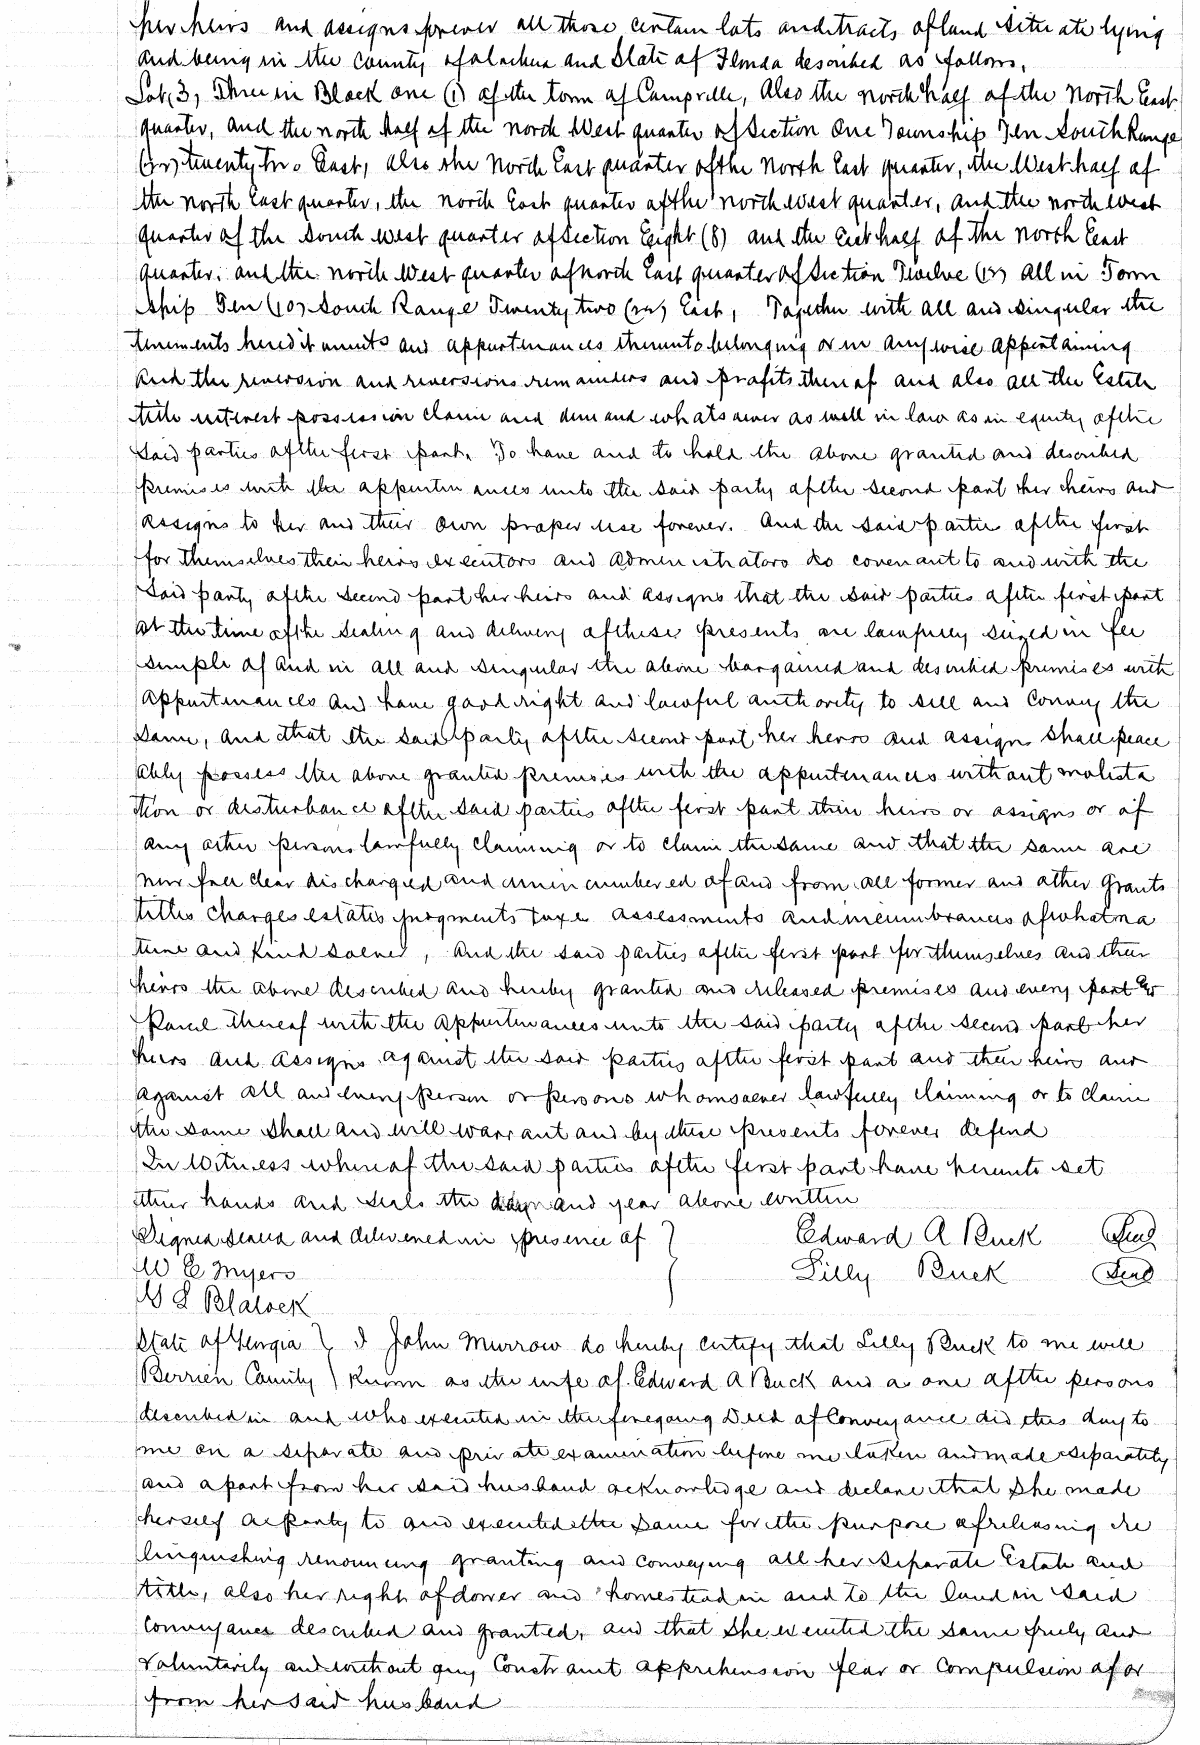 her heirs and assigns forever all those certain lots and tracts of land situate lying
and being in the County of Alachua and State of Florida described as follows,
Lot (3) Three in Block one (1) of the town of Campville, Also the north half of the North East
quarter, and the north half of the north West quarter of Section One Township Ten South Range
(22) twenty Two East, also the North East quarter of the North East quarter, the West half of
the north East quarter, the north East quarter of the north west quarter, and the north west
quarter of the South west quarter of Section Eight (8) and the East half of the north East
quarter. and the north West quarter of north East quarter of Section Twelve (12) all in Town
ship Ten (10) South Range Twenty two (22) East, Together with all and singular the
tenements heredit aments and appurtenances thereunto belonging or in any wise appertaining
and the reversion and reversions remainders and profits thereof and also all the Estate
title interest possession claim and demand whatsoever as well in law as in equity of the
said parties of the first part. To have and to hold the above granted and described
premises with the appurtenances unto the said party of the second part her heirs and
assigns to her and their own proper use forever. And the said partie of the first
for themselves their heirs executors and administrators do covenant to and with the
said party of the second part her heirs and assigns that the said parties of the first part
at the time of the sealing and delivery of these presents are lawfully seized in fee
simple of and in all and singular the above bargained and described premises with
appurtenances and have good right and lawful authority to sell and convey the
same, and that the said party of the second part her heirs and assigns shall peace
ably possess the above granted premises with the appurtenances without molesta
tion or disturbance of the said parties of the first part their heirs or assigns or of
any other persons lawfully claiming or to claim the same and that the same are
now free clear discharged and unincumbered of and from all former and other grants
titles charges estates judgments taxes assessments and incumbrances of what na
ture and kind soever, And the said parties of the first part for themselves and their
heirs the above described and hereby granted and released premises and every part &
Parcel thereof with the appurtenances unto the said party of the second part her
heirs and assigns against the said parties of the first part and their heirs and
against all and every person or persons whomsoever lawfully claiming or to claim
the same shall and will warrant and by these presents forever defend
In Witness whereof the said parties of the first part have hereunto set
their hands and seals the day and year above written
Signed sealed and delivered in presence of } Edward A Buck Seal
W E Myers Lilly Buck Seal
Blalock
State of Georgia } I John Murrow do hereby certify that Lilly Buck to me well
Berrien County } known as the wife of Edward A Buck and as one of the persons
described in and who executed in the foregoing Deed of Conveyance did this day to
me on a separate and private examination before me taken and made separately
and apart from her said husband acknowledge and declare that she made
herself a party to and executed the same for the purpose of releasing re
linquishing renouncing granting and conveying all her separate Estate and
title, also her right of dower and homestead in and to the land in said
Conveyance described and granted, and that she executed the same freely and
voluntarily and without any Constraint apprehension fear or compulsion of or
from her said husband